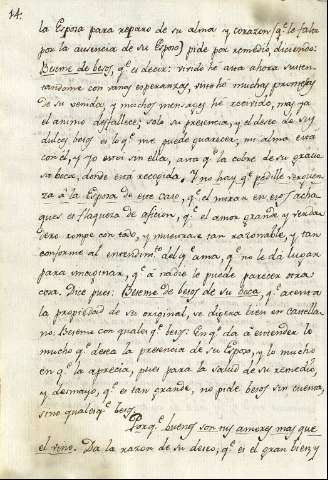 14.
la Esposa para reparo de su alma y corazon (q.e le falta
por la ausencia de su Esposo) pide por remedio, diciendo:
Beseme de besos, q.e es decir: vivido he asta ahora susten-
tandome con vanas esperanzas, muchas promesas
de su venida, y muchos mensages he recivido, mas ya
el animo desfallece; solo su presencia, y el deseo de sus
dulces besos es lo q.e me puede guarecer, mi alma está
con él, y yo estoi sin ella, asta q.e la cobre de su gracio-
sa boca, donde está recogida. Y no hay q.e pedille verguen-
za á la Esposa en este caso, q.e el mirar en esos acha-
ques es flaqueza de aficion, q.e el amor grande y verda-
dero rompe con todo, y muestrase tan razonable, y tan
conforme al entendim.to del q.e ama, q.e no le da lugar
para imaginar, q.e á nadie le puede parecer otra
cosa. Dice pues: Beseme de besos de su boca, q.e acerca
la propiedad de su original, se dijera bien en castella-
no: Beseme con qualesq.a besos: En q.e da á entender lo
mucho q.e desea la presencia de su Esposo, y lo mucho
en q.e la aprecia, pues para la salud de su remedio,
y desmayo, q.e es tan grande, no pide besos sin cuento,
sino qualesq.a besos.
Porq.e buenos son tus amores mas que
el vino. Da la razon de su deseo, q.e es el gran bien y